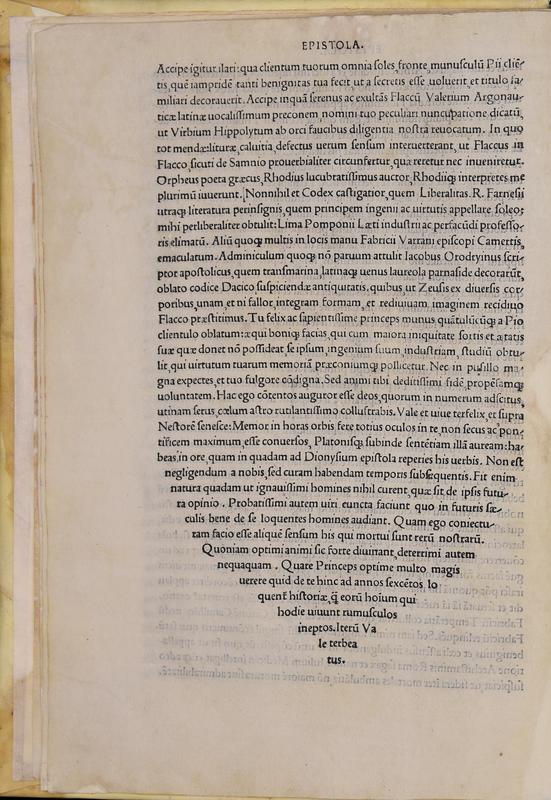 EPISTOLA.
Accipe igitur ilari: qua clientum tuorum omnia soles, fronte, munusculū Pii cliē-
tis, quē iampridē tanti benignitas tua fecit, ut a secretis esse uoluerit, et titulo fa-
miliari decorauerit. Accipe inquā serenus ac exultās Flaccū Valerium Argonau-
ticæ latinæ uocalissimum preconem, nomini tuo peculiari nuncupatione dicatū,
ut Virbium Hippolytum ab orci faucibus diligentia nostra reuocatum. In quo
tot mendæ: lituræ, caluitia, defectus uerum sensum interuerterant, ut Flaccus in
Flacco, sicuti de Samnio prouerbialiter circunfertur, quæreretur nec inueniretur.
Orpheus poeta græcus, Rhodius lucubratissimus auctor, Rhodiiq; interpretes me
plurimū iuuerunt. Nonnihil et Codex castigatior, quem Liberalitas. R. Farnesii
utraq; literatura perinsignis, quem principem ingenii ac uirtutis appellare soleo:
mihi perliberaliter obtulit: Lima Pomponii Læti industrii ac perfacūdi professo-
ris elimatū. Aliū quoq; multis in locis manu Fabricii Varrani episcopi Camertis,
emaculatum. Adminiculum quoq; nō paruum attulit Iacobus Orodryinus scri-
ptor apostolicus, quem transmarina, latinaq; uenus laureola parnaside decorarūt,
oblato codice Dacico suspiciendæ antiquitatis, quibus, ut Zeusis ex diuersis cor-
poribus, unam, et ni fallor, integram formam, et rediuiuam imaginem recidiuo
Flacco præstitimus. Tu felix ac sapientissime princeps munus quātulūcūq; a Pio
clientulo oblatum: æqui boniq; facias, qui cum maiora iniquitate sortis et ætatis
suæ quæ donet nō possideat, se ipsum, ingenium suum, industriam, studiū obtu-
lit, qui uirtutum tuarum memoriā præconiumq; pollicetur. Nec in pusillo ma-
gna expectes, et tuo fulgore cōdigna. Sed animi tibi deditissimi fidē, propēsamq;
uoluntatem. Hac ego cōtentos auguror esse deos, quorum in numerum adscitus,
utinam serus, cœlum astro rutilantissimo collustrabis. Vale et uiue terfelix, et supra
Nestorē senesce: Memor in horas orbis fere totius oculos in te, non secus ac pon-
tificem maximum, esse conuersos, Platonisq; subinde sentētiam illā auream: ha-
beas, in ore, quam in quadam ad Dionysium epistola reperies his uerbis. Non est
negligendum a nobis, sed curam habendam temporis subsequentis. Fit enim
natura quadam ut ignauissimi homines nihil curent, quæ sit de ipsis futu-
ra opinio. Probatissimi autem uiri cuncta faciunt quo in futuris sæ-
culis bene de se loquentes homines audiant. Quam ego coniectu-
ram facio esse aliquē sensum his qui mortui sunt rerū nostrarū.
Quoniam optimi animi sic forte diuinant, deterrimi autem
nequaquam. Quare Princeps optime multo magis
uerere quid de te hinc ad annos sexcētos lo
quent̄ historiæ, q̄ eorū hoium qui
hodie uiuunt rumusculos
ineptos. Iterū Va
le terbea
tus.